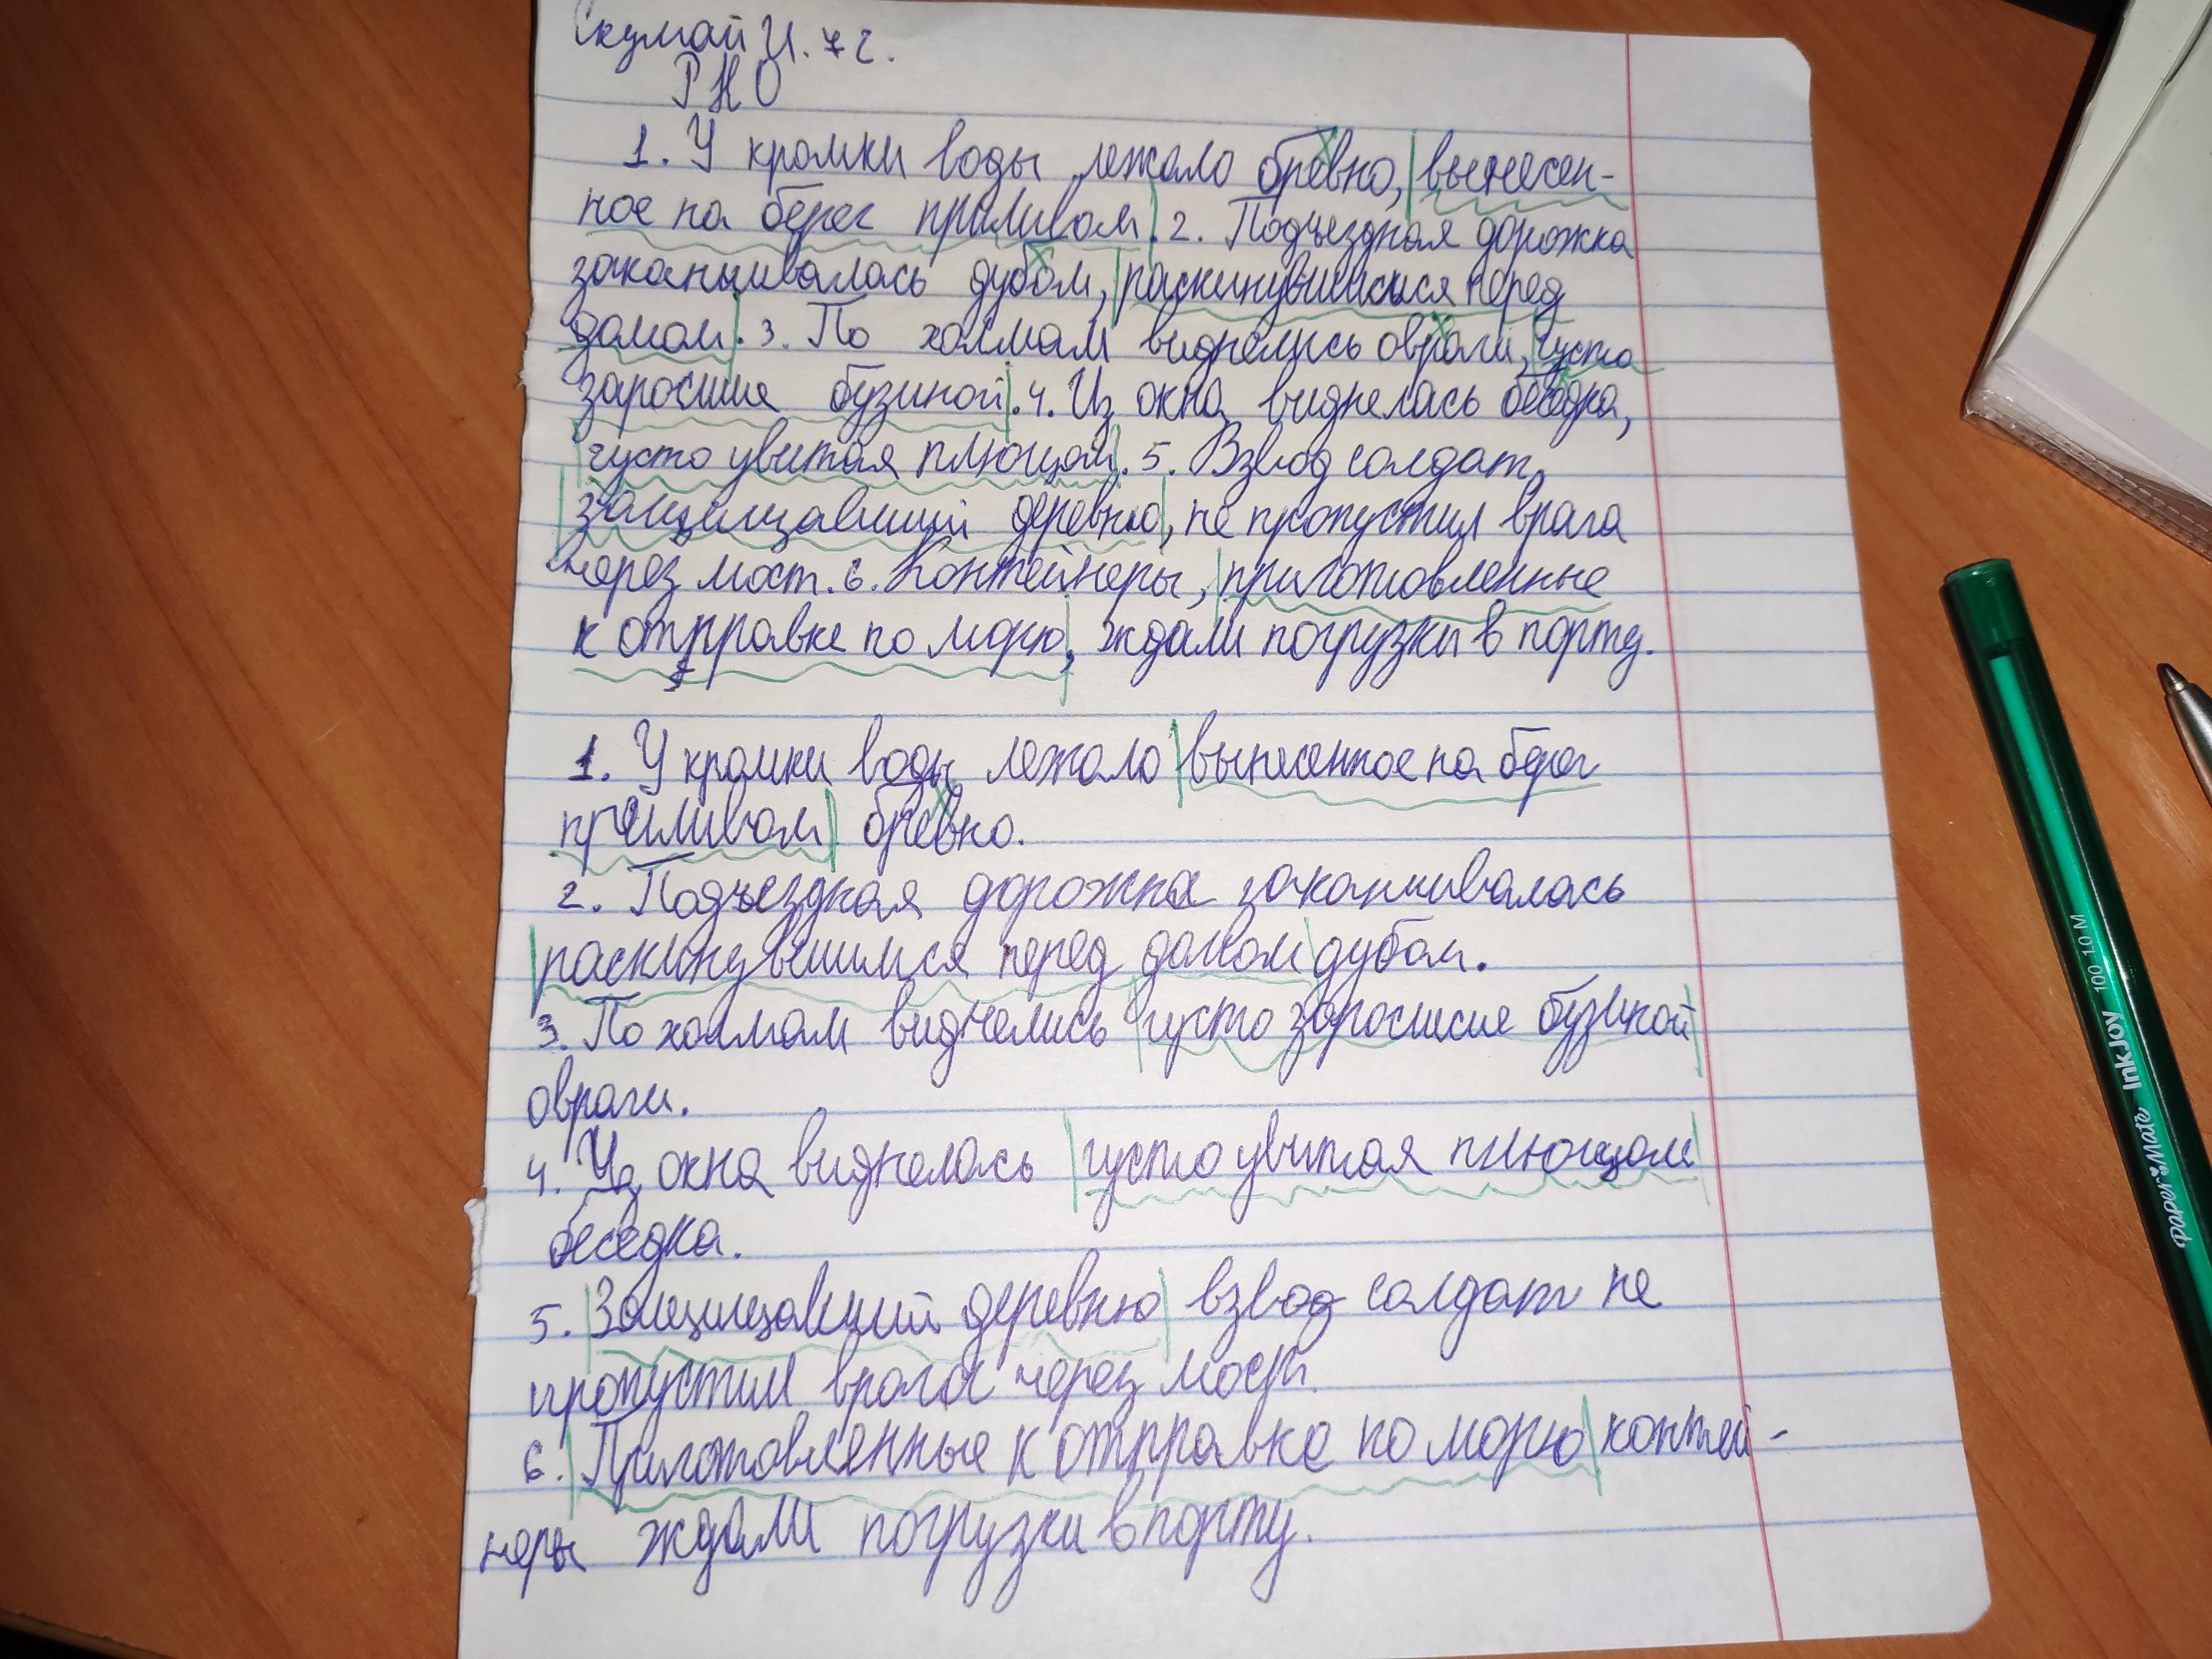 Скумай И. 7 г.
РНО
1. У кромки воды лежало бревно, вынесен-
ное на берег приливом. 2. Подъездная дорожка
заканчивалась дубом, раскинувшимися перед
домом. 3. По холмам виднелись овраги, густо
заросшие бузиной. 4. Из окна виднелась беседка,
густо увитая плющом. 5. Взвод солдат,
защищавший деревню, не пропустил врага
через мост. 6. Контейнеры, приготовленные
к отправке по морю, ждали погрузки в порту.
1. У кромки воды лежало вынесенное на берег
приливом бревно.
2. Подъездная дорожка заканчивалась
раскинувшимся перед домом дубом.
3. По холмам виднелись густо заросшие бузиной
овраги.
4. Из окна виднелась густо увитая плющом
беседка.
5. Защищавший деревню взвод солдат не
пропустил врага через мост.
6. Приготовленные к отправке по морю контей-
неры ждали погрузки в порту.
paper mate InkJoy 100 1.0 M